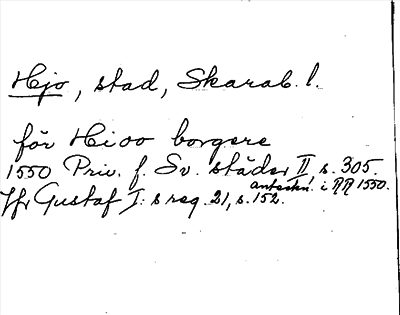 Hjo, stad, Skarab. l.
för Hioo borgere
1550 Priv. f. Sv. städer II s. 305.
anteckn. i RR 1550.
Jfr Gustaf I:s reg. 21, s. 152.